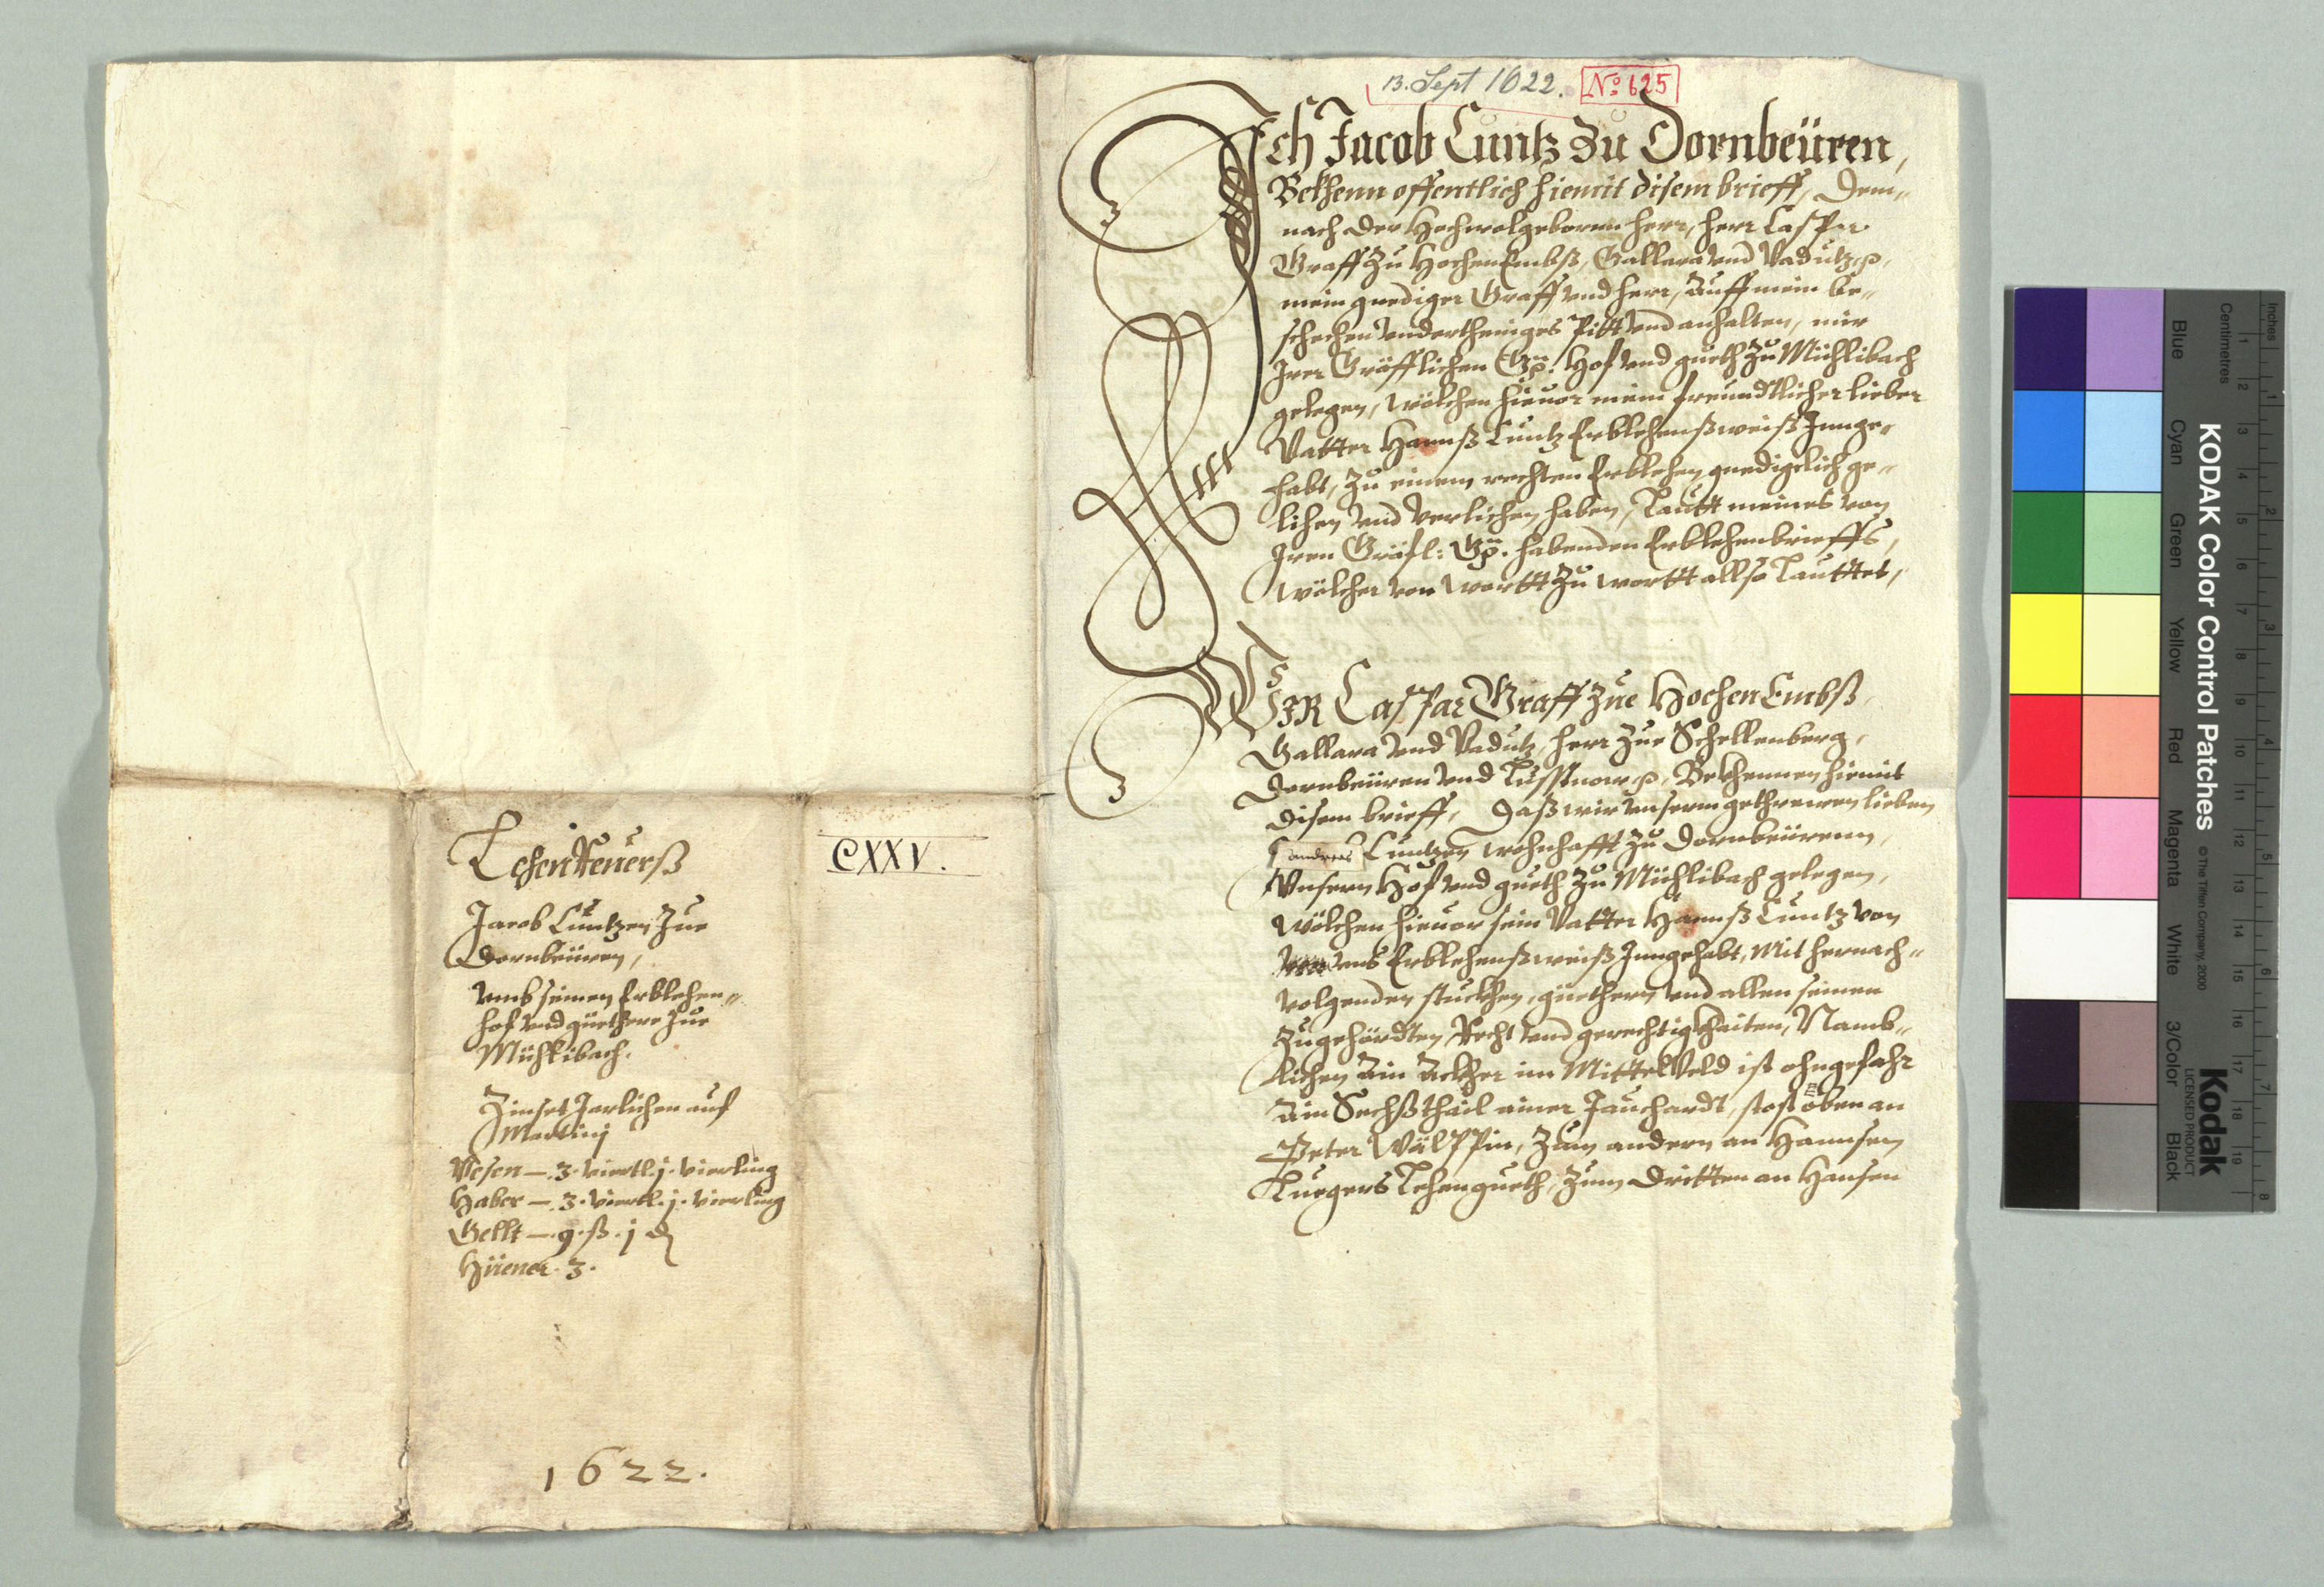 Lehen Reuerß
Jacob Cuntzen Zue
Dornbeüren,
vmb seinen Erblehen„
hof vnd güethere Zue
Mühlibach.
Zinset Jarlichen auf
Martinj
Vesen — 3. viertl. j. vierling
Haber — 3. viertl. j. vierling
Gellt — 9. ß. j ₰
Hüener 3.
1622.
CXXV.
13. Sept 1622. No 625
Ich Jacob Cuntz Zu Dornbeüren,
Bekhenn offentlich hiemit disem brieff, Dem„
nach der Hochwolgeborne herr, herr Caspar
Graff Zu Hochen Embß, Gallara vnd Vadutz p,
mein gnediger Graff vnd herr, auff mein be„
schechen vndertheniges Pitt vnd anhalten, mir
Irer Gräfflichen Gn. Hof vnd gueth Zu Mühlibach
gelegen, wölchen hieuor mein freundtlicher lieber
Vatter Hannß Cuntz Erblehenßweiß Innge„
habt, Zu einem rechten Erblehen gnedigclich ge„
lihen vnd verlichen haben, Lautt meines von
Iren Gräfl: Gn. habenden Erblehenbrieffs,
wölcher von wortt Zu wortt allso Lauttet,
WIR Caspar Graff Zue Hochen Embß,
Gallara vnd Vadutz, herr Zue Schellenberg,
Dornbeüren vnd Lusstnow p, Bekhennen hiemit
disem brieff, Daß wir vnserm gethrewen lieben
andreas Cuntzen wohnhafft Zu Dornbeürenn,
Vnsern Hof vnd gueth Zu Mühlibach gelegen,
wölchen hieuor sein Vatter Hannß Cuntz von
vns Erblehenßweiß Inngehabt, Mit hernach„
volgenden stuckhen, güethern vnd allen seinen
Zugehördten Recht vnd gerechtigkhaiten, Namb„
lichen Ain Ackher im Mittelveld ist ohngefahr
ain Sechßthail ainer Jauchardt, stost oben an
Peter Wälppin, Zum andern an Hannsen
Luegers Lehengueth, Zum dritten an Hansen
KODAK Color Control Patches
© The Tiffen Company, 2000
Kodak
LICENSED PRODUCT
Inches
Centimetres
Blue
Cyan
Green
Yellow
Red
Magenta
White
3/Color
Black
1 2 3 4 5 6 7 8
1 2 3 4 5 6 7 8 9 10 11 12 13 14 15 16 17 18 19